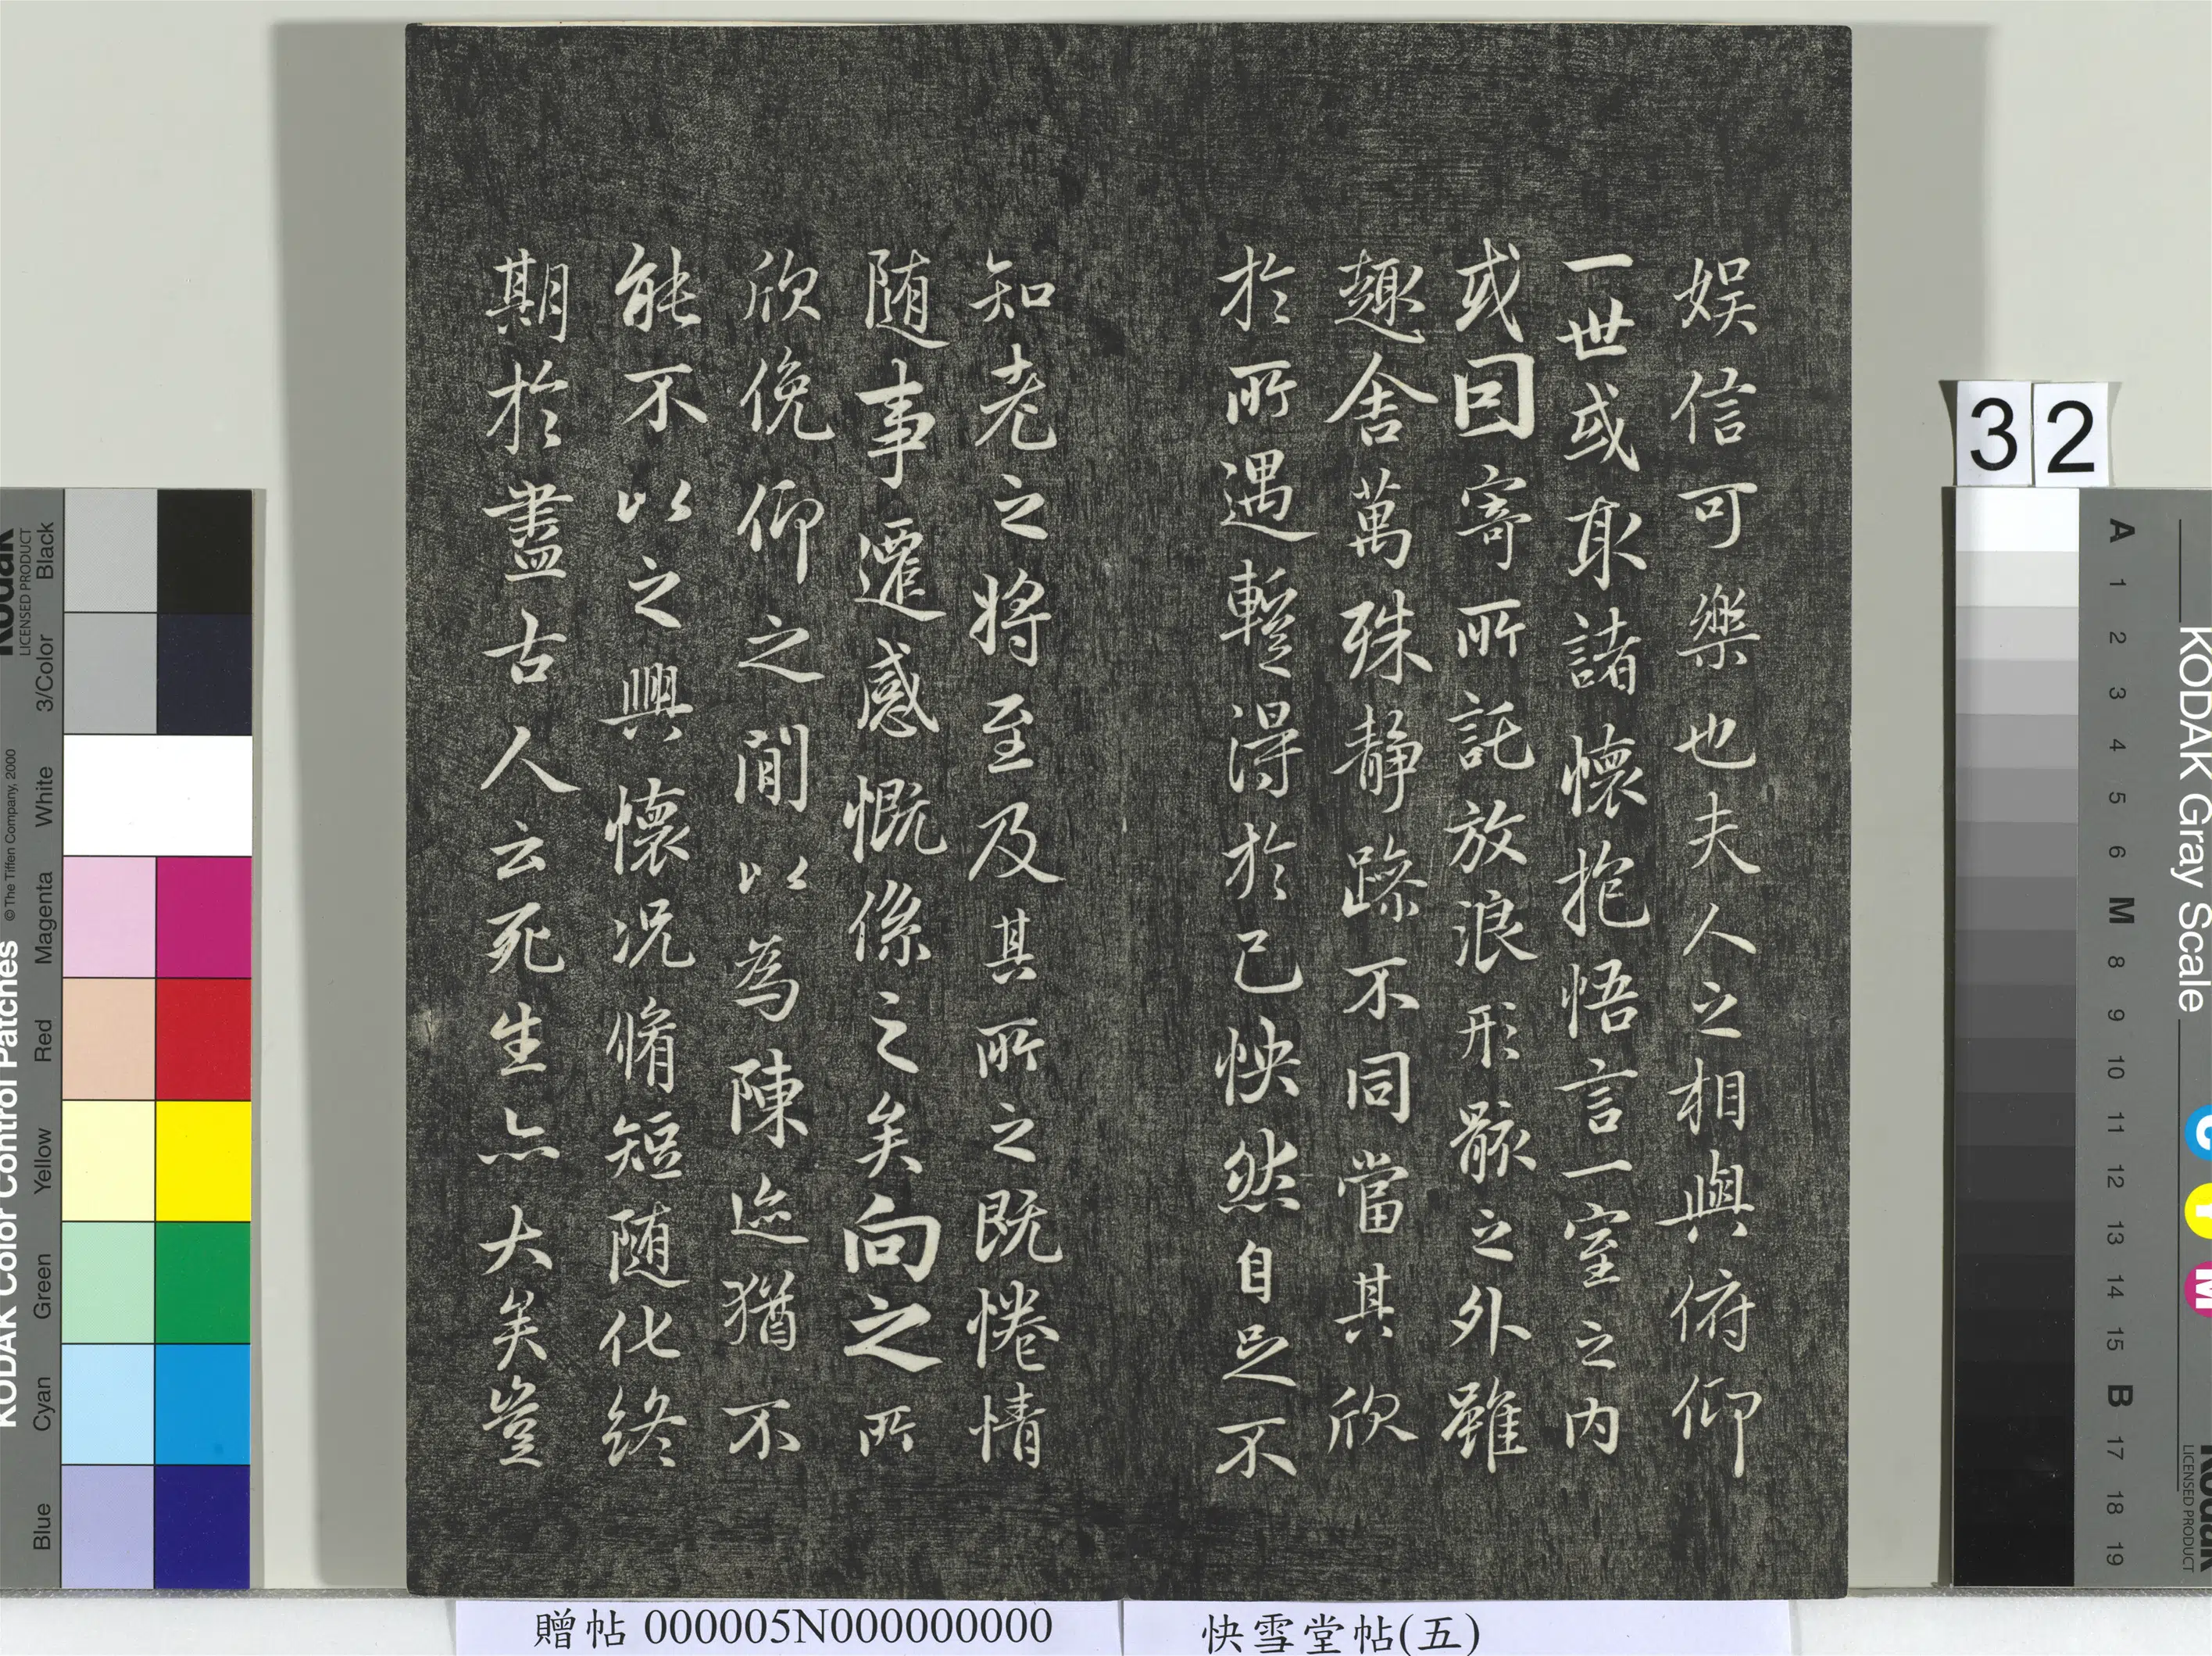 娱信可樂也夫人之相與俯仰
一世或取諸懷抱悟言一室之内
或因寄所託放浪形骸之外雖
趣舍萬殊静躁不同當其欣
於所遇暫得於己怏然自足不
知老之將至及其所之既惓情
随事遷感慨係之矣向之所
欣俛仰之閒以為陳迹猶不
能不以之興懷况脩短随化終
期於盡古人云死生亦大矣豈
贈帖 000005N000000000
快雪堂帖(五)
32
KODAK Color Control Patches © The Tiffen Company, 2000
Kodak
LICENSED PRODUCT
Blue Cyan Green Yellow Red Magenta White 3/Color Black
KODAK Gray Scale
A 1 2 3 4 5 6 M 8 9 10 11 12 13 14 15 B 17 18 19
C Y M
Kodak
LICENSED PRODUCT